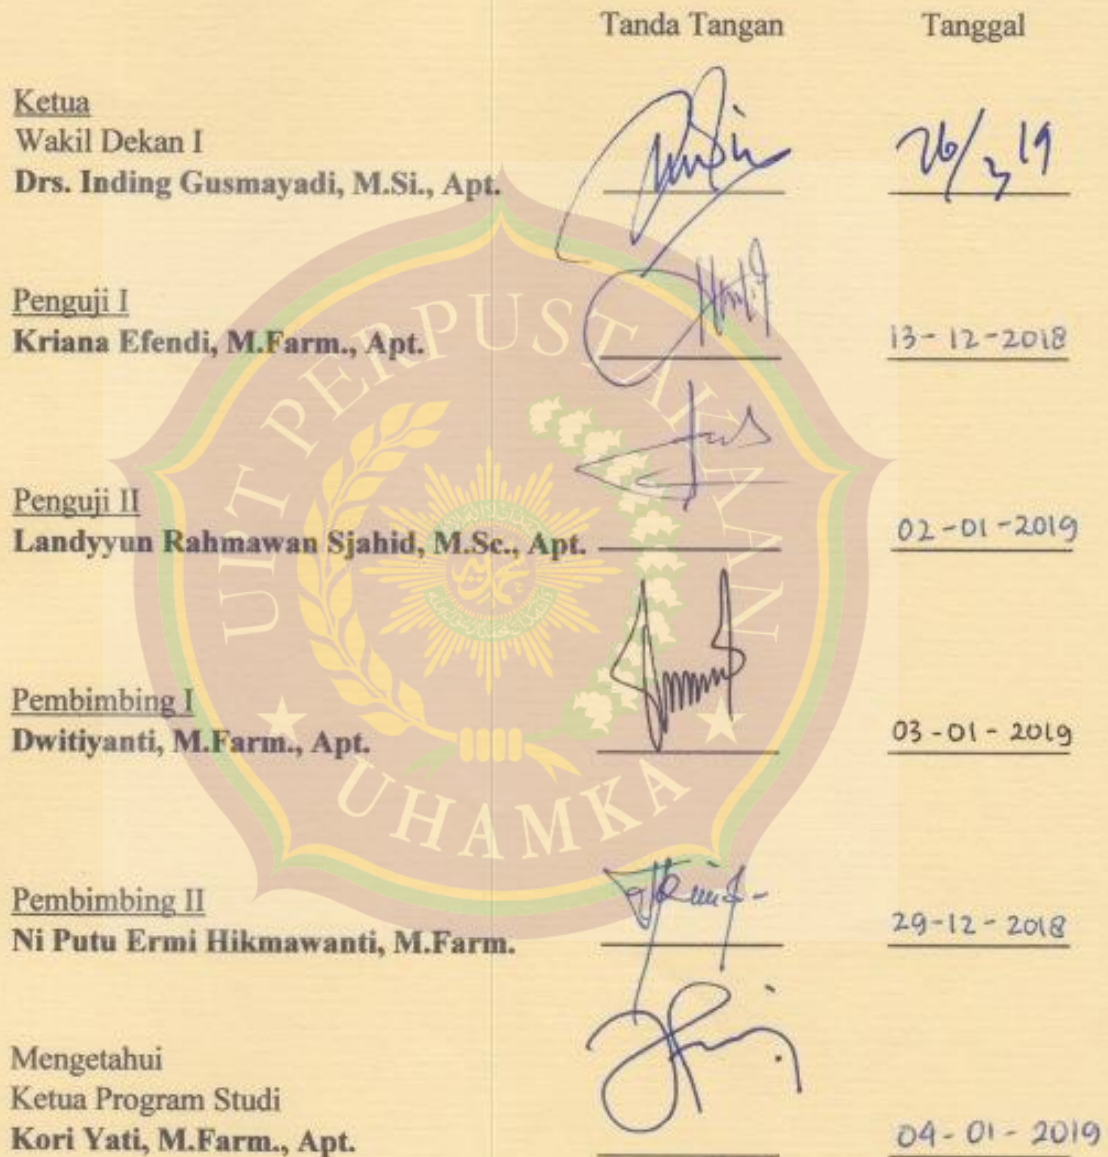 Tanda Tangan Tanggal
Ketua
Wakil Dekan I
Drs. Inding Gusmayadi, M.Si., Apt.
Penguji I
Kriana Efendi, M.Farm., Apt. 13-12-2018
Penguji II
Landyyun Rahmawan Sjahid, M.Sc., Apt. 02-01-2019
Pembimbing I
Dwitiyanti, M.Farm., Apt. 03-01-2019
Pembimbing II
Ni Putu Ermi Hikmawanti, M.Farm. 29-12-2018
Mengetahui
Ketua Program Studi
Kori Yati, M.Farm., Apt. 04-01-2019
UPT PERPUSTAKAAN
UHAMKA